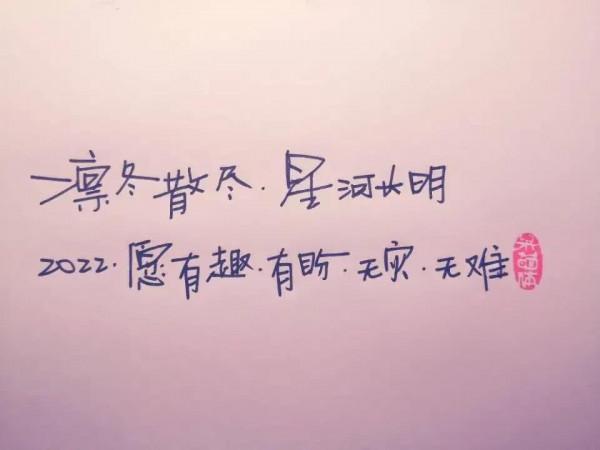 凛冬散尽·星河长明
2022·愿有趣·有盼·无灾·无难